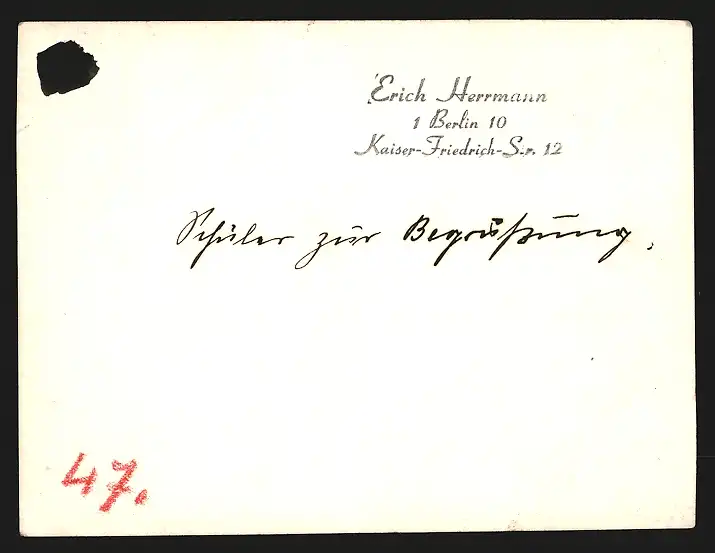 Erich Herrmann
1 Berlin 10
Kaiser-Friedrich-Str. 12
Schüler zur Begrüßung.
47.